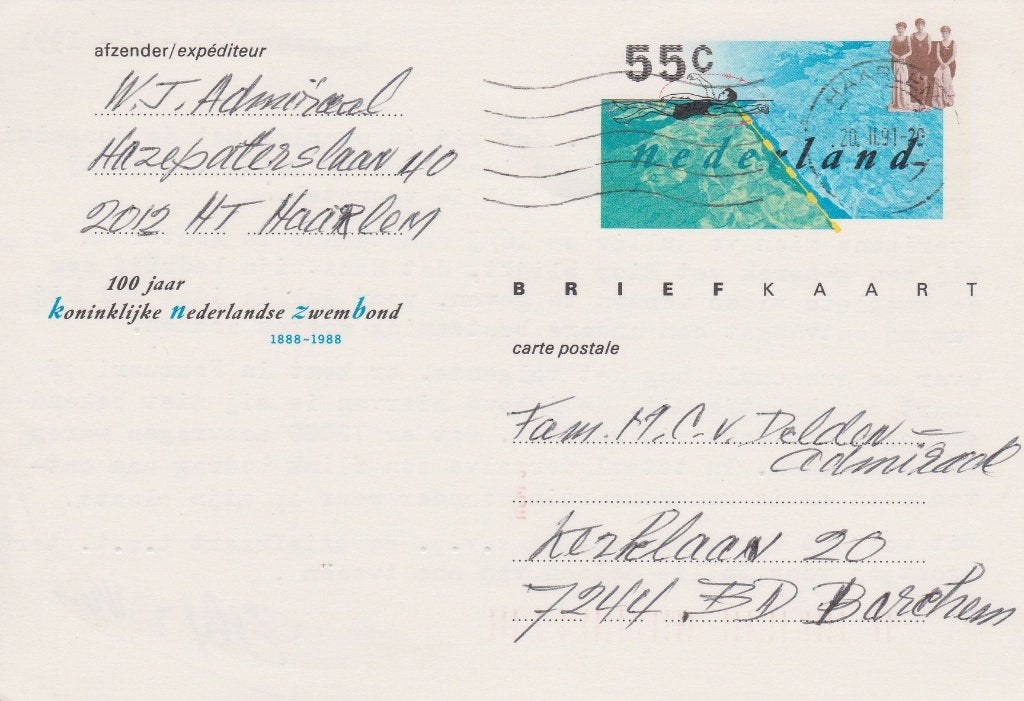 afzender/expéditeur
W.J. Admiraal
Hazepaterslaan 40
2012 HT Haarlem
100 jaar
koninklijke nederlandse zwembond
1888~1988
55c
nederland
HAARLEM
20.II.91-20
BRIEFKAART
carte postale
Fam. M.C. v. Delden =
Admiraal
Kerklaan 20
7244 BD Barchem